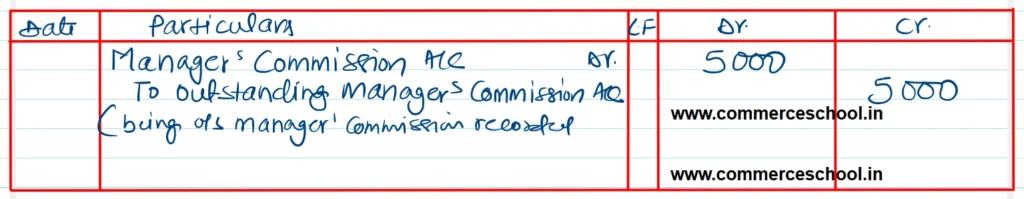 Date Particulars LF Dr. Cr.
Manager's Commission A/C Dr. 5000
To outstanding Manager's Commission A/C 5000
(being o/s manager' commission recorded
www.commerceschool.in
www.commerceschool.in